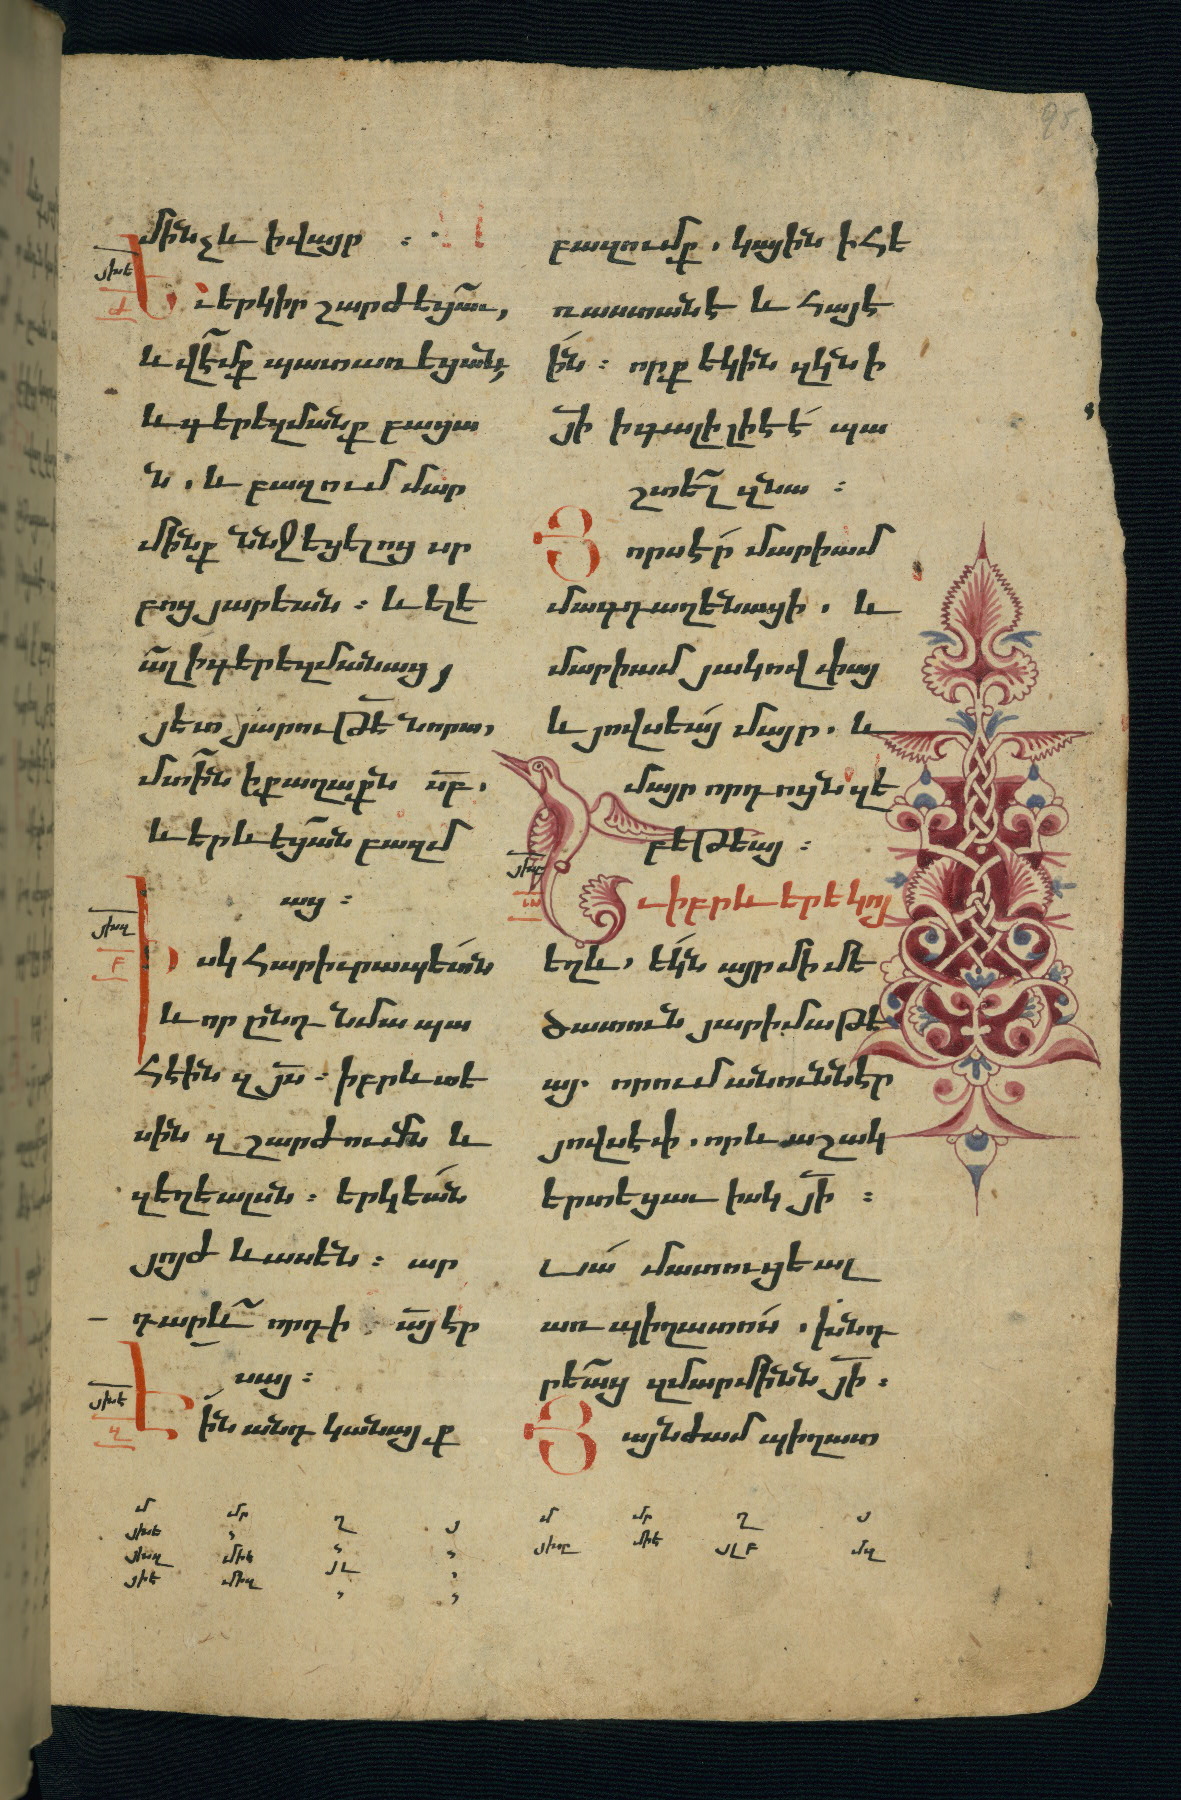 մինչև ի վայր :
և երկիր շարժեցաւ,
և վէմք պատառեցան,
և գերեզմանք բացա
ն . և բազում մար
մինք ննջեցելոց սր
բոց յարեան : և ելե
ալ ի գերեզմանաց,
յետ յարութե նորա,
մտին ի քաղաքն սբ .
և երևեցան բազմ
աց :
Իսկ հարիւրապետն
և որ ընդ նմա պա
հէին զյս : իբրև տե
սին զշարժումն և
զեղեալսն : երկեան
յոյժ և ասեն : ար
դարև որդի այ էր
սայ :
Էին անդ կանայք
բազումք . կային ի հե
ռաստանէ և հայէ
ին : որք եկին զկնի
յի ի գալիլիէէ պա
շտել զնա :
Յորս էր մարիամ
մագդաղենացի . և
մարիամ յակովբայ
և յովսեայ մայր . և
մայր որդոցն զե
բեթեայ :
Եւ իբրև երեկոյ
եղև, եկն այր մի մե
ծատուն յարիմաթե
այ . որում անուն էր
յովսէփ . որ և աշակ
երտեցաւ իսկ յի :
Սա մատուցեալ
առ պիղատոս . խնդ
րեաց զմարմինն յի :
Յայնժամ պիղատ
մ մր ղ յ
մ մր ղ յ